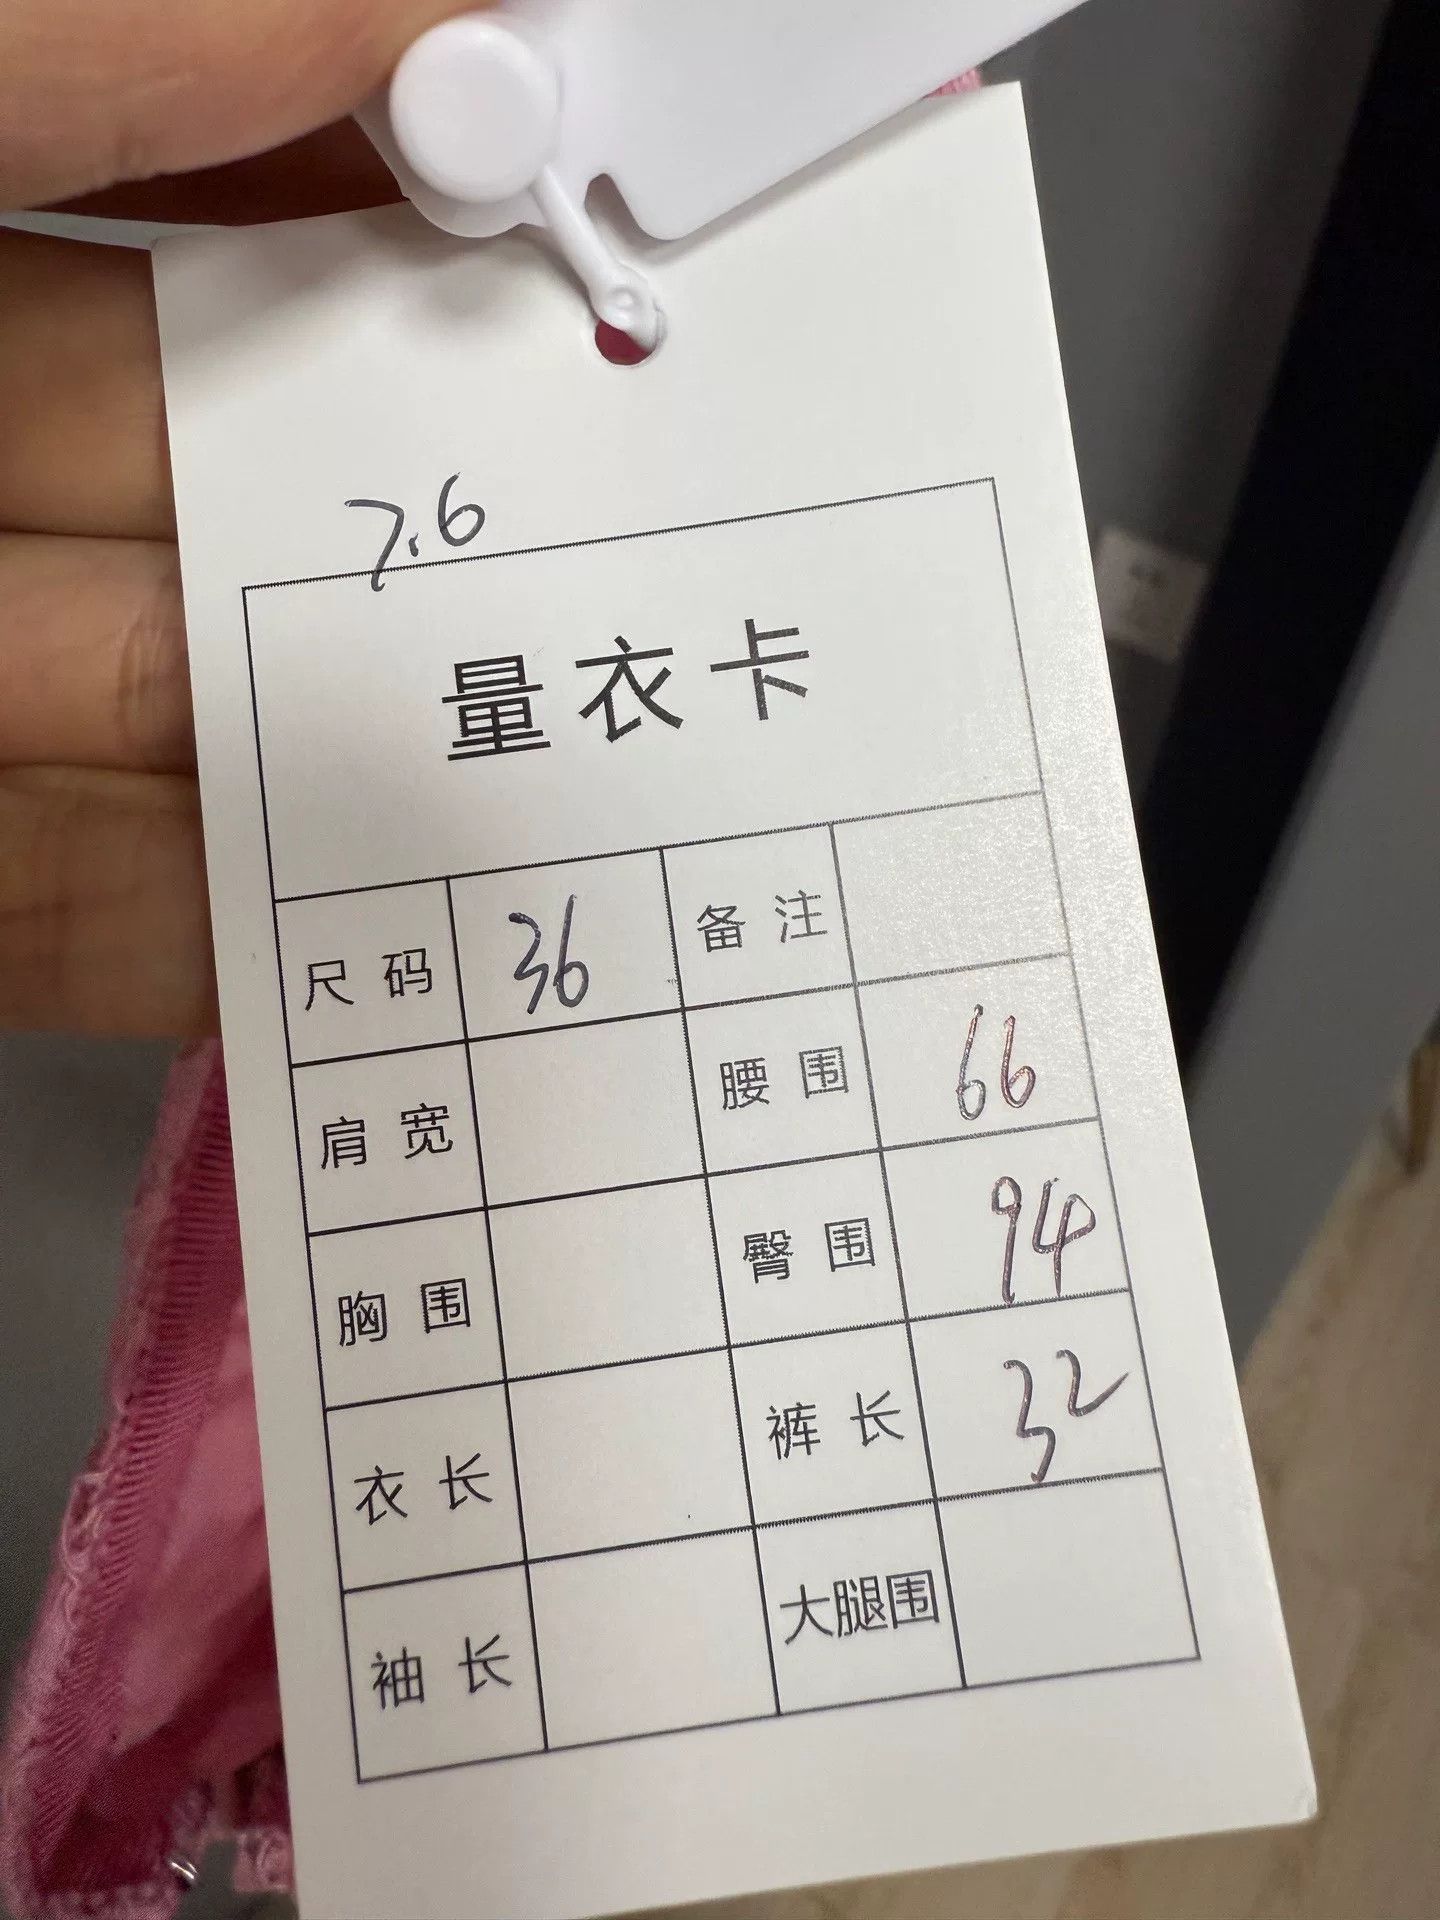 7.6
量衣卡
尺码 36 备注
肩宽 腰围 66
胸围 臀围 94
衣长 裤长 32
袖长 大腿围